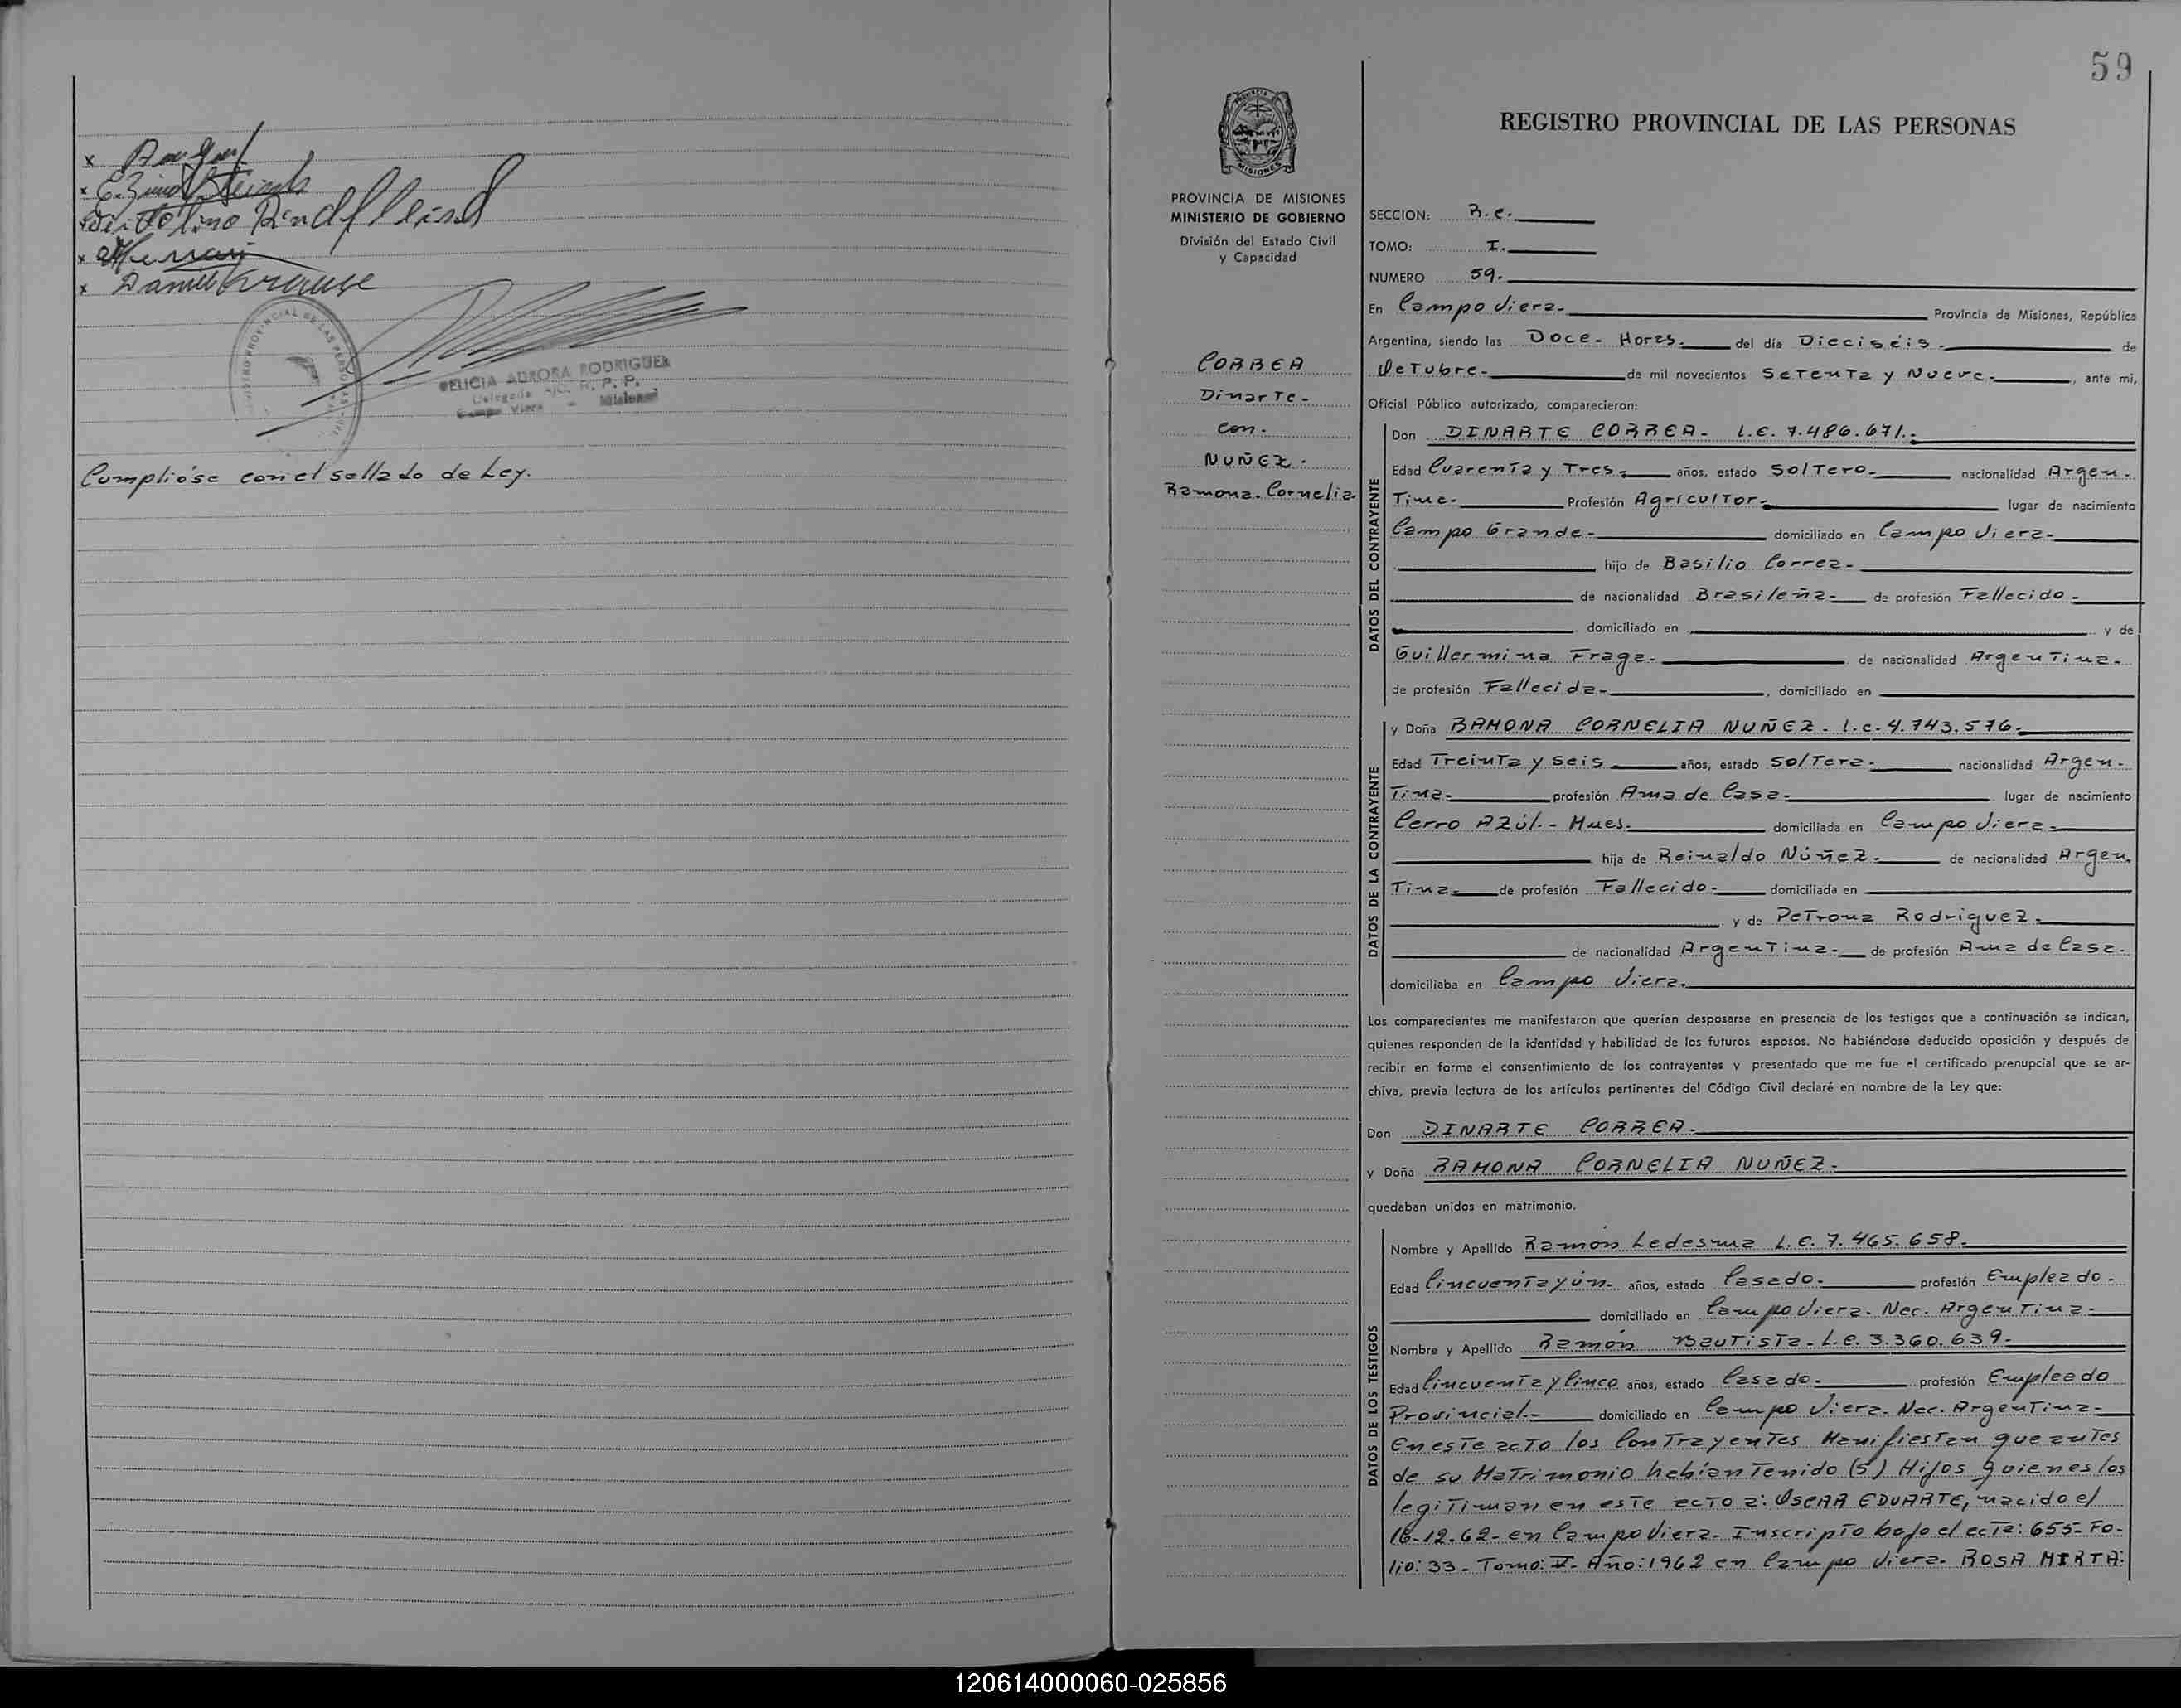 Daniel Krause
FELICIA AURORA RODRIGUEZ
Delegada R. P. P.
Campo Viera - Misiones
Cumplióse con el sellado de Ley.
59
REGISTRO PROVINCIAL DE LAS PERSONAS
MISIONES
PROVINCIA DE MISIONES
MINISTERIO DE GOBIERNO
División del Estado Civil
y Capacidad
CORREA
Dinarte-
con.
NUÑEZ.
Ramona. Cornelia.
SECCION: R.C.
TOMO: I.
NUMERO 59.
En Campo Viera- Provincia de Misiones, República
Argentina, siendo las Doce- Horas- del día Dieciséis- de
Octubre- de mil novecientos Setenta y Nueve-, ante mi,
Oficial Público autorizado, comparecieron:
DATOS DEL CONTRAYENTE
Don DINARTE CORREA- L.E. 7.486.671.-
Edad Cuarenta y Tres- años, estado Soltero- nacionalidad Argen-
Tina- Profesión Agricultor- lugar de nacimiento
Campo Grande- domiciliado en Campo Viera-
hijo de Basilio Correa-
de nacionalidad Brasileña- de profesión Fallecido-
domiciliado en y de
Guillermina Fraga- de nacionalidad Argentina-
de profesión Fallecida-, domiciliado en
DATOS DE LA CONTRAYENTE
y Doña RAMONA CORNELIA NUÑEZ- L.C. 4.743.576-
Edad Treinta y Seis años, estado Soltera- nacionalidad Argen-
Tina- profesión Ama de Casa- lugar de nacimiento
Cerro Azúl.- Mnes. domiciliada en Campo Viera-
hija de Reinaldo Núñez- de nacionalidad Argen.
Tina- de profesión Fallecido- domiciliada en
y de Petrona Rodriguez-
de nacionalidad Argentina- de profesión Ama de Casa-
domiciliaba en Campo Viera.
Los comparecientes me manifestaron que querían desposarse en presencia de los testigos que a continuación se indican,
quienes responden de la identidad y habilidad de los futuros esposos. No habiéndose deducido oposición y después de
recibir en forma el consentimiento de los contrayentes y presentado que me fue el certificado prenupcial que se ar-
chiva, previa lectura de los artículos pertinentes del Código Civil declaré en nombre de la Ley que:
Don DINARTE CORREA-
y Doña RAMONA CORNELIA NUÑEZ-
quedaban unidos en matrimonio.
DATOS DE LOS TESTIGOS
Nombre y Apellido Ramón Ledesma L.E. 7.465.658-
Edad Cincuenta y ún- años, estado Casado- profesión Empleado-
domiciliado en Campo Viera. Nac. Argentina-
Nombre y Apellido Ramón Bautista- L.E. 3.360.639-
Edad Cincuenta y Cinco años, estado Casado- profesión Empleado
Provincial.- domiciliado en Campo Viera- Nac. Argentina-
En este acto los Contrayentes Manifiestan que antes
de su Matrimonio habían Tenido (5) Hijos quienes los
legitiman en este acto a: OSCAR EDUARTE, nacido el
16-12-62- en Campo Viera- Inscripto bajo el acta: 655- Fo-
lio: 33- Tomo: IV- Año: 1962 en Campo Viera- ROSA MIRTA:
120614000060-025856